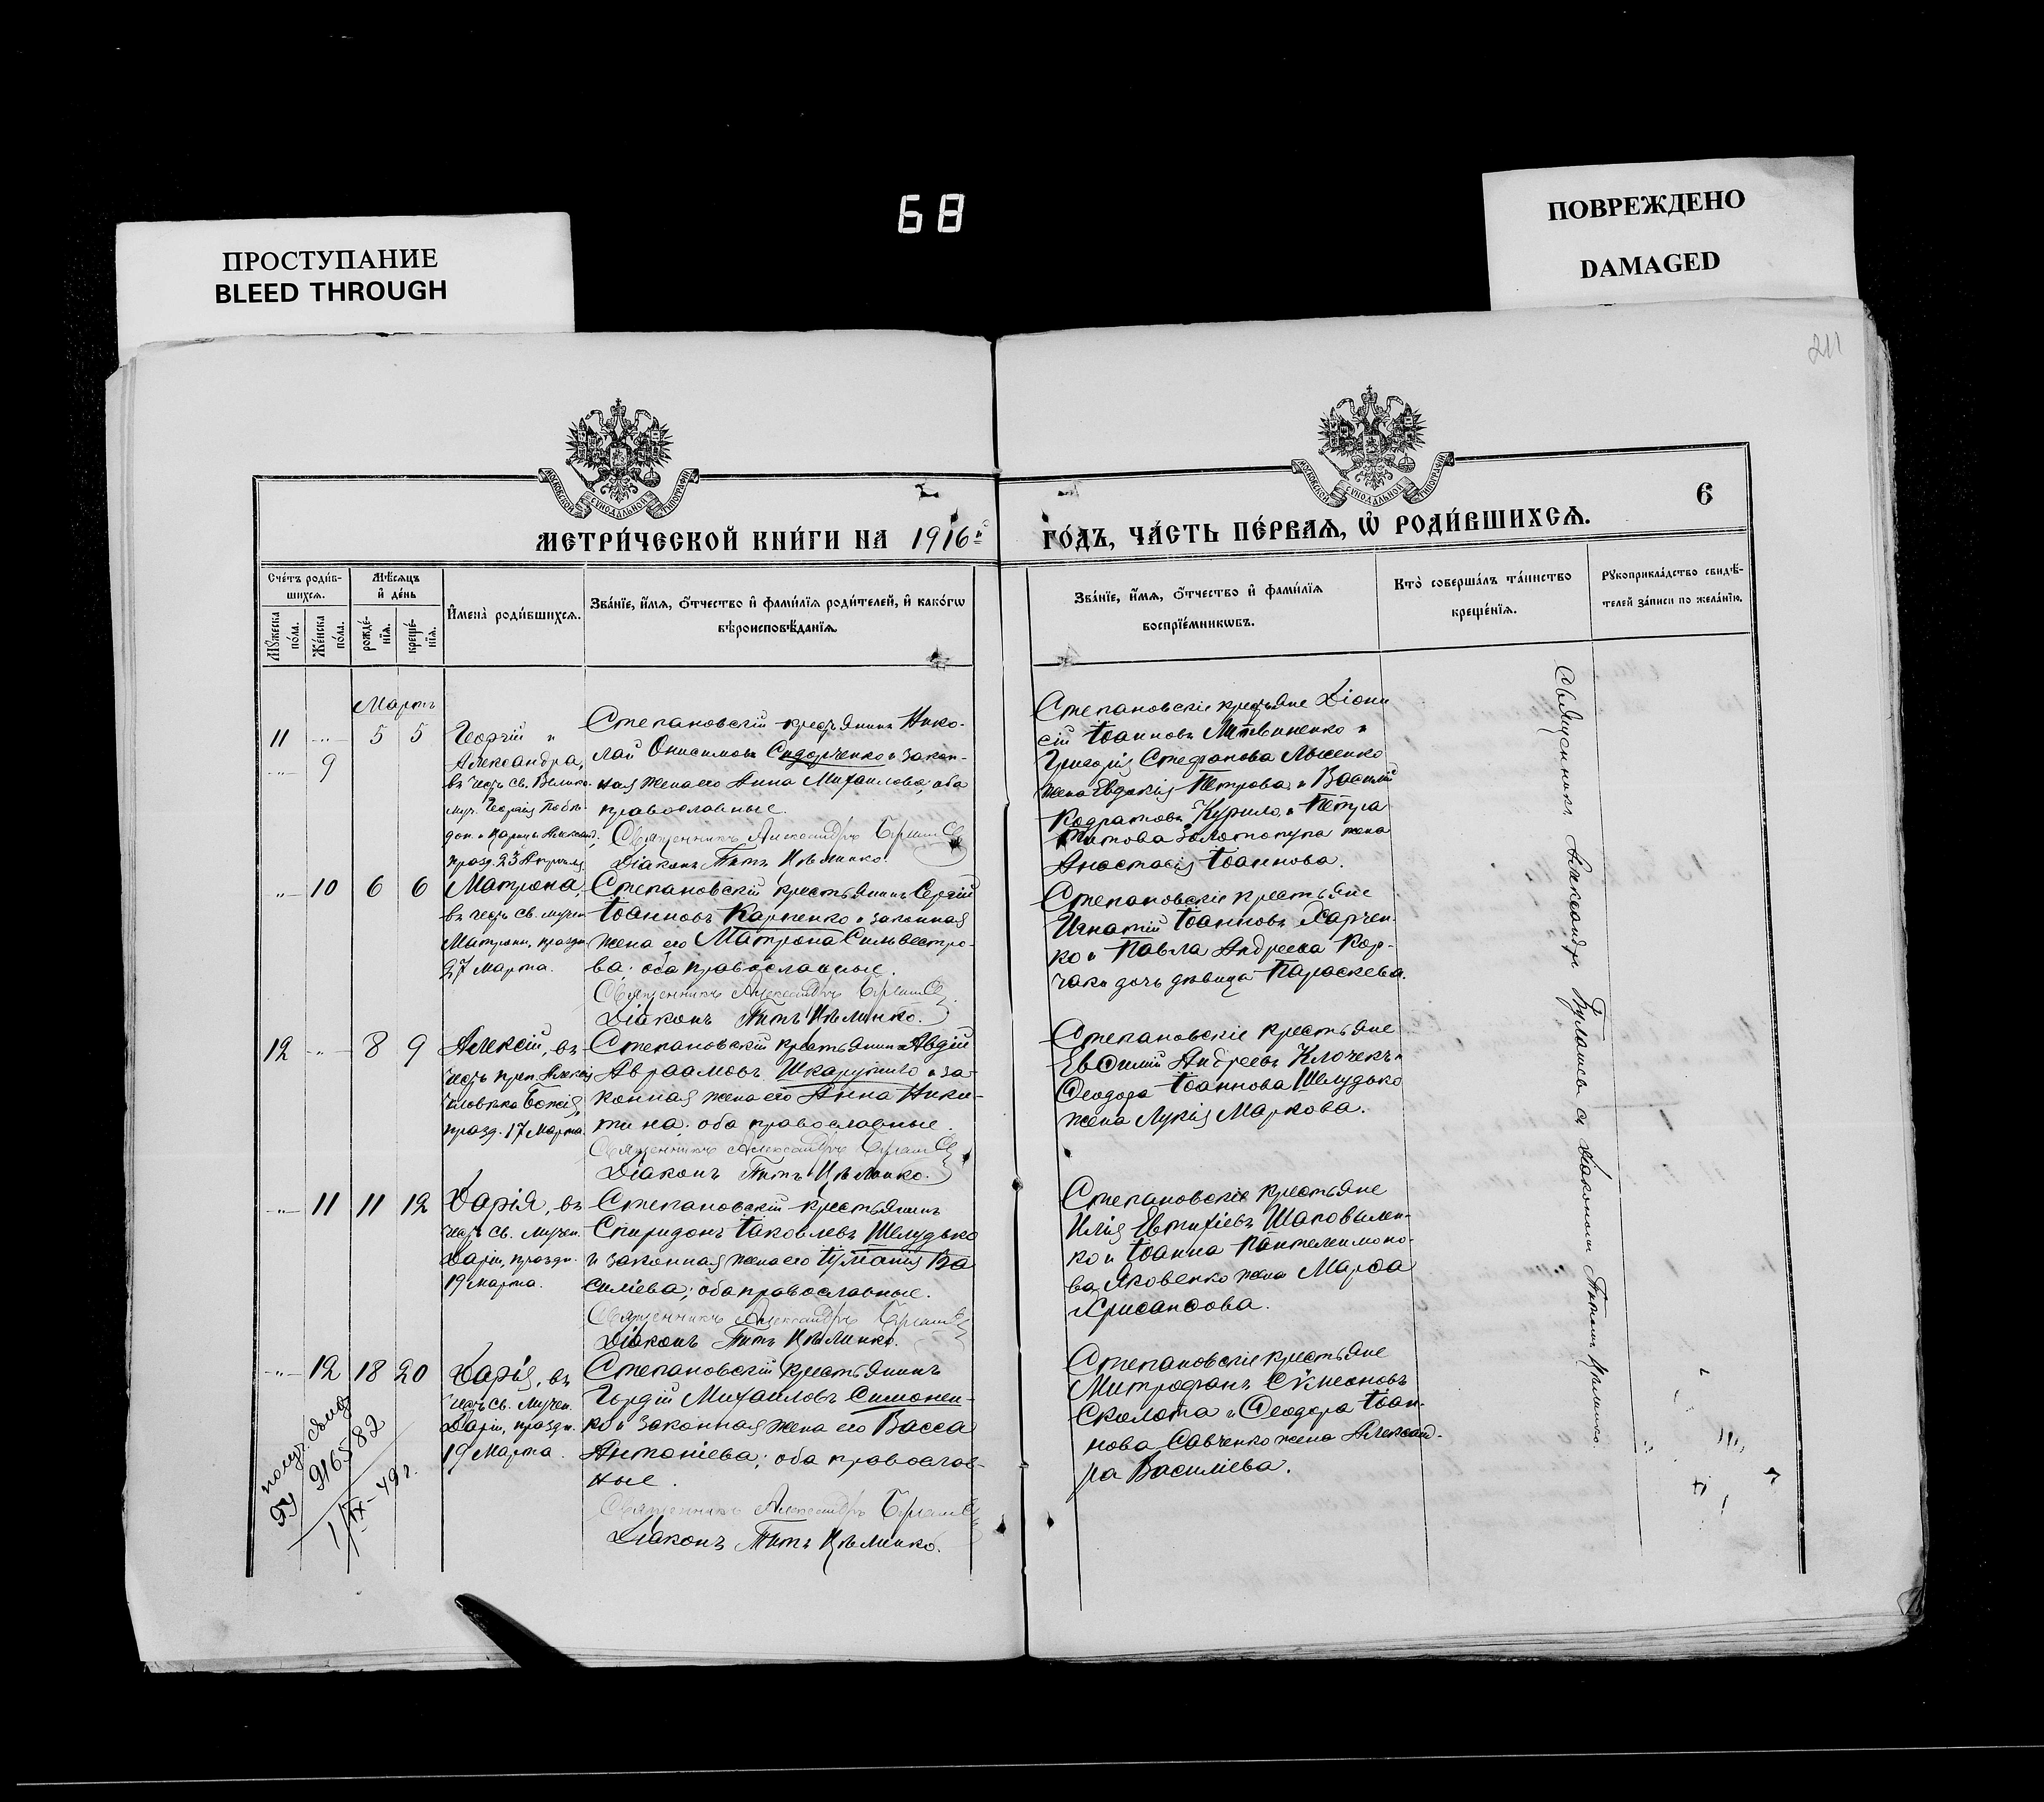 68
ПРОСТУПАНИЕ
BLEED THROUGH
ПОВРЕЖДЕНО
DAMAGED
211
МОСКОВСКОЙ СѴНОДАЛЬНОЙ ТИПОГРАФІИ
МОСКОВСКОЙ СѴНОДАЛЬНОЙ ТИПОГРАФІИ
6
МЕТРИ́ЧЕСКОЙ КНИ́ГИ НА 1916й ГО́ДЪ, ЧА́СТЬ ПЕ́РВАЯ, Ѡ҆ РОДИ́ВШИХСѦ.
Сче́тъ роди́в-
шихсѧ.
Мꙋ́жеска по́ла.
Же́нска по́ла.
Мѣ́сѧцъ
и҆ де́нь
рожде́-
нїѧ.
креще́-
нїѧ.
И҆мена̀ роди́вшихсѧ.
Зва́нїе, и҆́мѧ, ѻ҆́тчество и҆ фами́лїѧ роди́телей, и҆ како́гѡ
вѣроисповѣ́данїѧ.
Зва́нїе, и҆́мѧ, ѻ҆́тчество и҆ фами́лїѧ
воспрїе́мникѡвъ.
Кто̀ соверша́лъ та́инство
креще́нїѧ.
Рꙋкоприкла́дство свидѣ́-
телей за́писи по жела́нїю.
Мартъ
11 -"- 5 5
-"- 9
Георгій и
Александра,
въ честь св. Велико-
муч. Георгія Побѣ-
дон. и Царицы Александ.,
празд. 23 Апрѣля
Степановскій крестьянинъ Нико-
лай Онисимовъ Сидорченко и закон-
ная жена его Анна Михаилова, оба
православные.
Священникъ Александръ
Діаконъ Титъ Цѣлинко.
Степановскіе крестьяне Діони
сій Іоанновъ Литвиненко и
Григорія Стефанова Лысенко
жена Евдокія Петрова и Василій
Кодратовъ Курило, и Петра
Титова Золотопупа жена
Анастасія Іоаннова.
-"- 10 6 6
Матрона,
въ честь св. мучен
Матроны, праздн
27 Марта.
Степановскій крестьянинъ Сергій
Іоанновъ Карпенко и законная
жена его Матрона Сильвестро-
ва; оба православные.
Священникъ Александръ
Діаконъ Титъ Цѣлинко.
Степановскіе крестьяне
Игнатій Іоанновъ Харчен-
ко и Павла Андреева Кор-
чака дочь дѣвица Параскева.
12 -"- 8 9
Алексій, въ
честь преп. Алексія
человѣка Божія,
празд. 17 Марта.
Степановскій крестьянинъ Авдій
Авраамовъ Шкарупило и за-
конная жена его Анна Ники-
тина; оба православные.
Священникъ Александръ
Діаконъ Титъ Цѣлинко.
Степановскіе крестьяне
Евѳимій Андреевъ Клочекъ и
Ѳеодора Іоаннова Шелудько
жена Лукія Маркова.
-"- 11 11 12
Дарія, въ
честь св. мучен.
Даріи, праздн.
19 Марта.
Степановскій крестьянинъ
Спиридонъ Іаковлевъ Шелудько
и законная жена его Іуліанія Ва
силіева; оба православные.
Священникъ Александръ
Діаконъ Титъ Цѣлинко.
Степановскіе крестьяне
Илія Евтихіевъ Шаповален-
ко и Іоанна Пантелеимоно-
ва Яковенко жена Марѳа
Хрисанѳова.
-"- 12 18 20
Дарія, въ
честь св. мучен.
Даріи, праздн.
19 Марта.
Степановскій крестьянинъ
Гордій Михаиловъ Симонен-
ко и законная жена его Васса
Антоніева; оба православ-
ные.
Священникъ Александръ
Діаконъ Титъ Цѣлинко.
Степановскіе крестьяне
Митрофанъ Сѵмеоновъ
Сколота и Ѳеодора Іоан-
нова Савченко жена Александ-
ра Василіева.
Священникъ Александръ съ Діакономъ Титомъ Цѣлинко.
916582
1/IX-49 г.